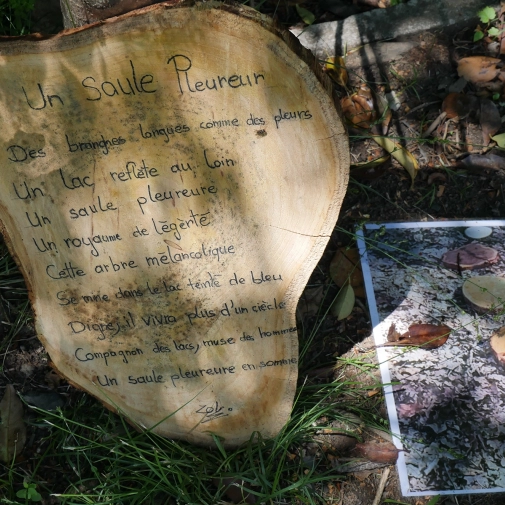 Un Saule Pleureur
Des branches longues comme des pleurs
Un lac reflète au loin
Un saule pleureure
Un royaume de légèrté
Cette arbre mélancolique
Se mire dans le lac teinté de bleu
Digne, il vivra plus d'un siècle
Compagnon des lacs, muse des hommes
Un saule pleureure en somme